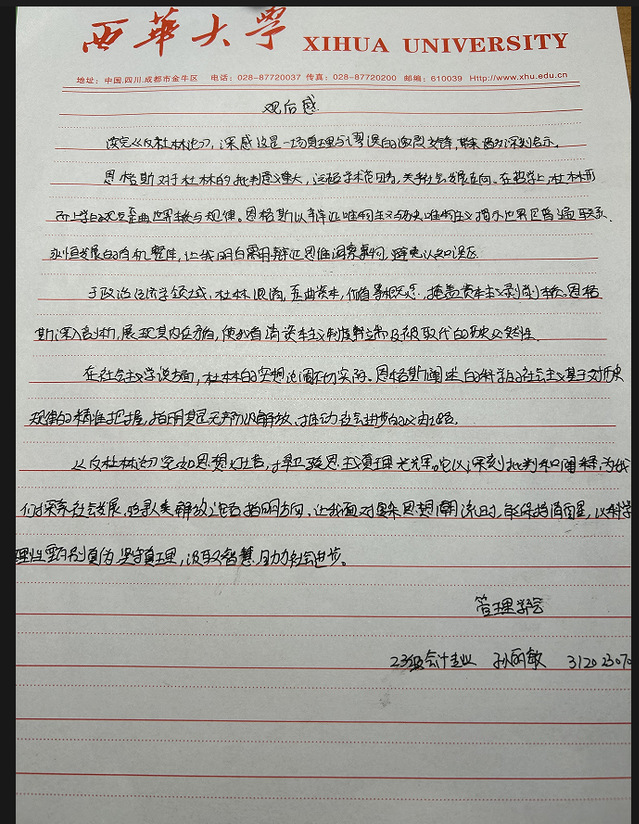 西华大学 XIHUA UNIVERSITY
地址：中国.四川.成都市金牛区 电话：028-87720037 传真：028-87720200 邮编：610039 Http://www.xhu.edu.cn
观后感
读完《反杜林论》，深感这是一场真理与谬误的激烈交锋，带来深刻启示。
恩格斯对于杜林的批判意义重大，远超学术范围，关乎社会发展走向。在哲学上，杜林形
而上学的观点歪曲世界本质与规律。恩格斯以辩证唯物主义与历史唯物主义揭示世界是普遍联系、
永恒发展的有机整体，让我明白需用辩证思维洞察事物，避免认知误区。
于政治经济学领域，杜林混淆、歪曲资本，价值等概念，掩盖资本主义剥削本质。恩格
斯深入剖析，展现其内在矛盾，使我看清资本主义制度弊端及被取代的历史必然性。
在社会主义学说方面，杜林的空想论调不切实际。恩格斯阐述的科学的社会主义基于对历史
规律的精准把握，指明其是无产阶级解放、推动社会进步的必由之路。
《反杜林论》宛如思想灯塔，捍卫马克思主义真理光辉。它以深刻批判和阐释，为我
们探索社会发展，追寻人类解放道路指明方向。让我面对繁杂思想潮流时，能保持清醒，以科学
理性甄别真伪，坚守真理，汲取智慧，助力社会进步。
管理学院
23级会计专业 孙丽敏 312023070